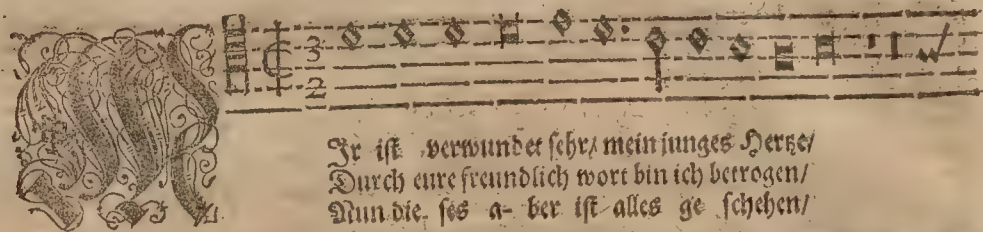 3
2
MIr ist verwundet sehr/ mein junges Hertze/
Durch eure freundlich wort bin ich betrogen/
Nun die- ses a- ber ist alles ge schehen/